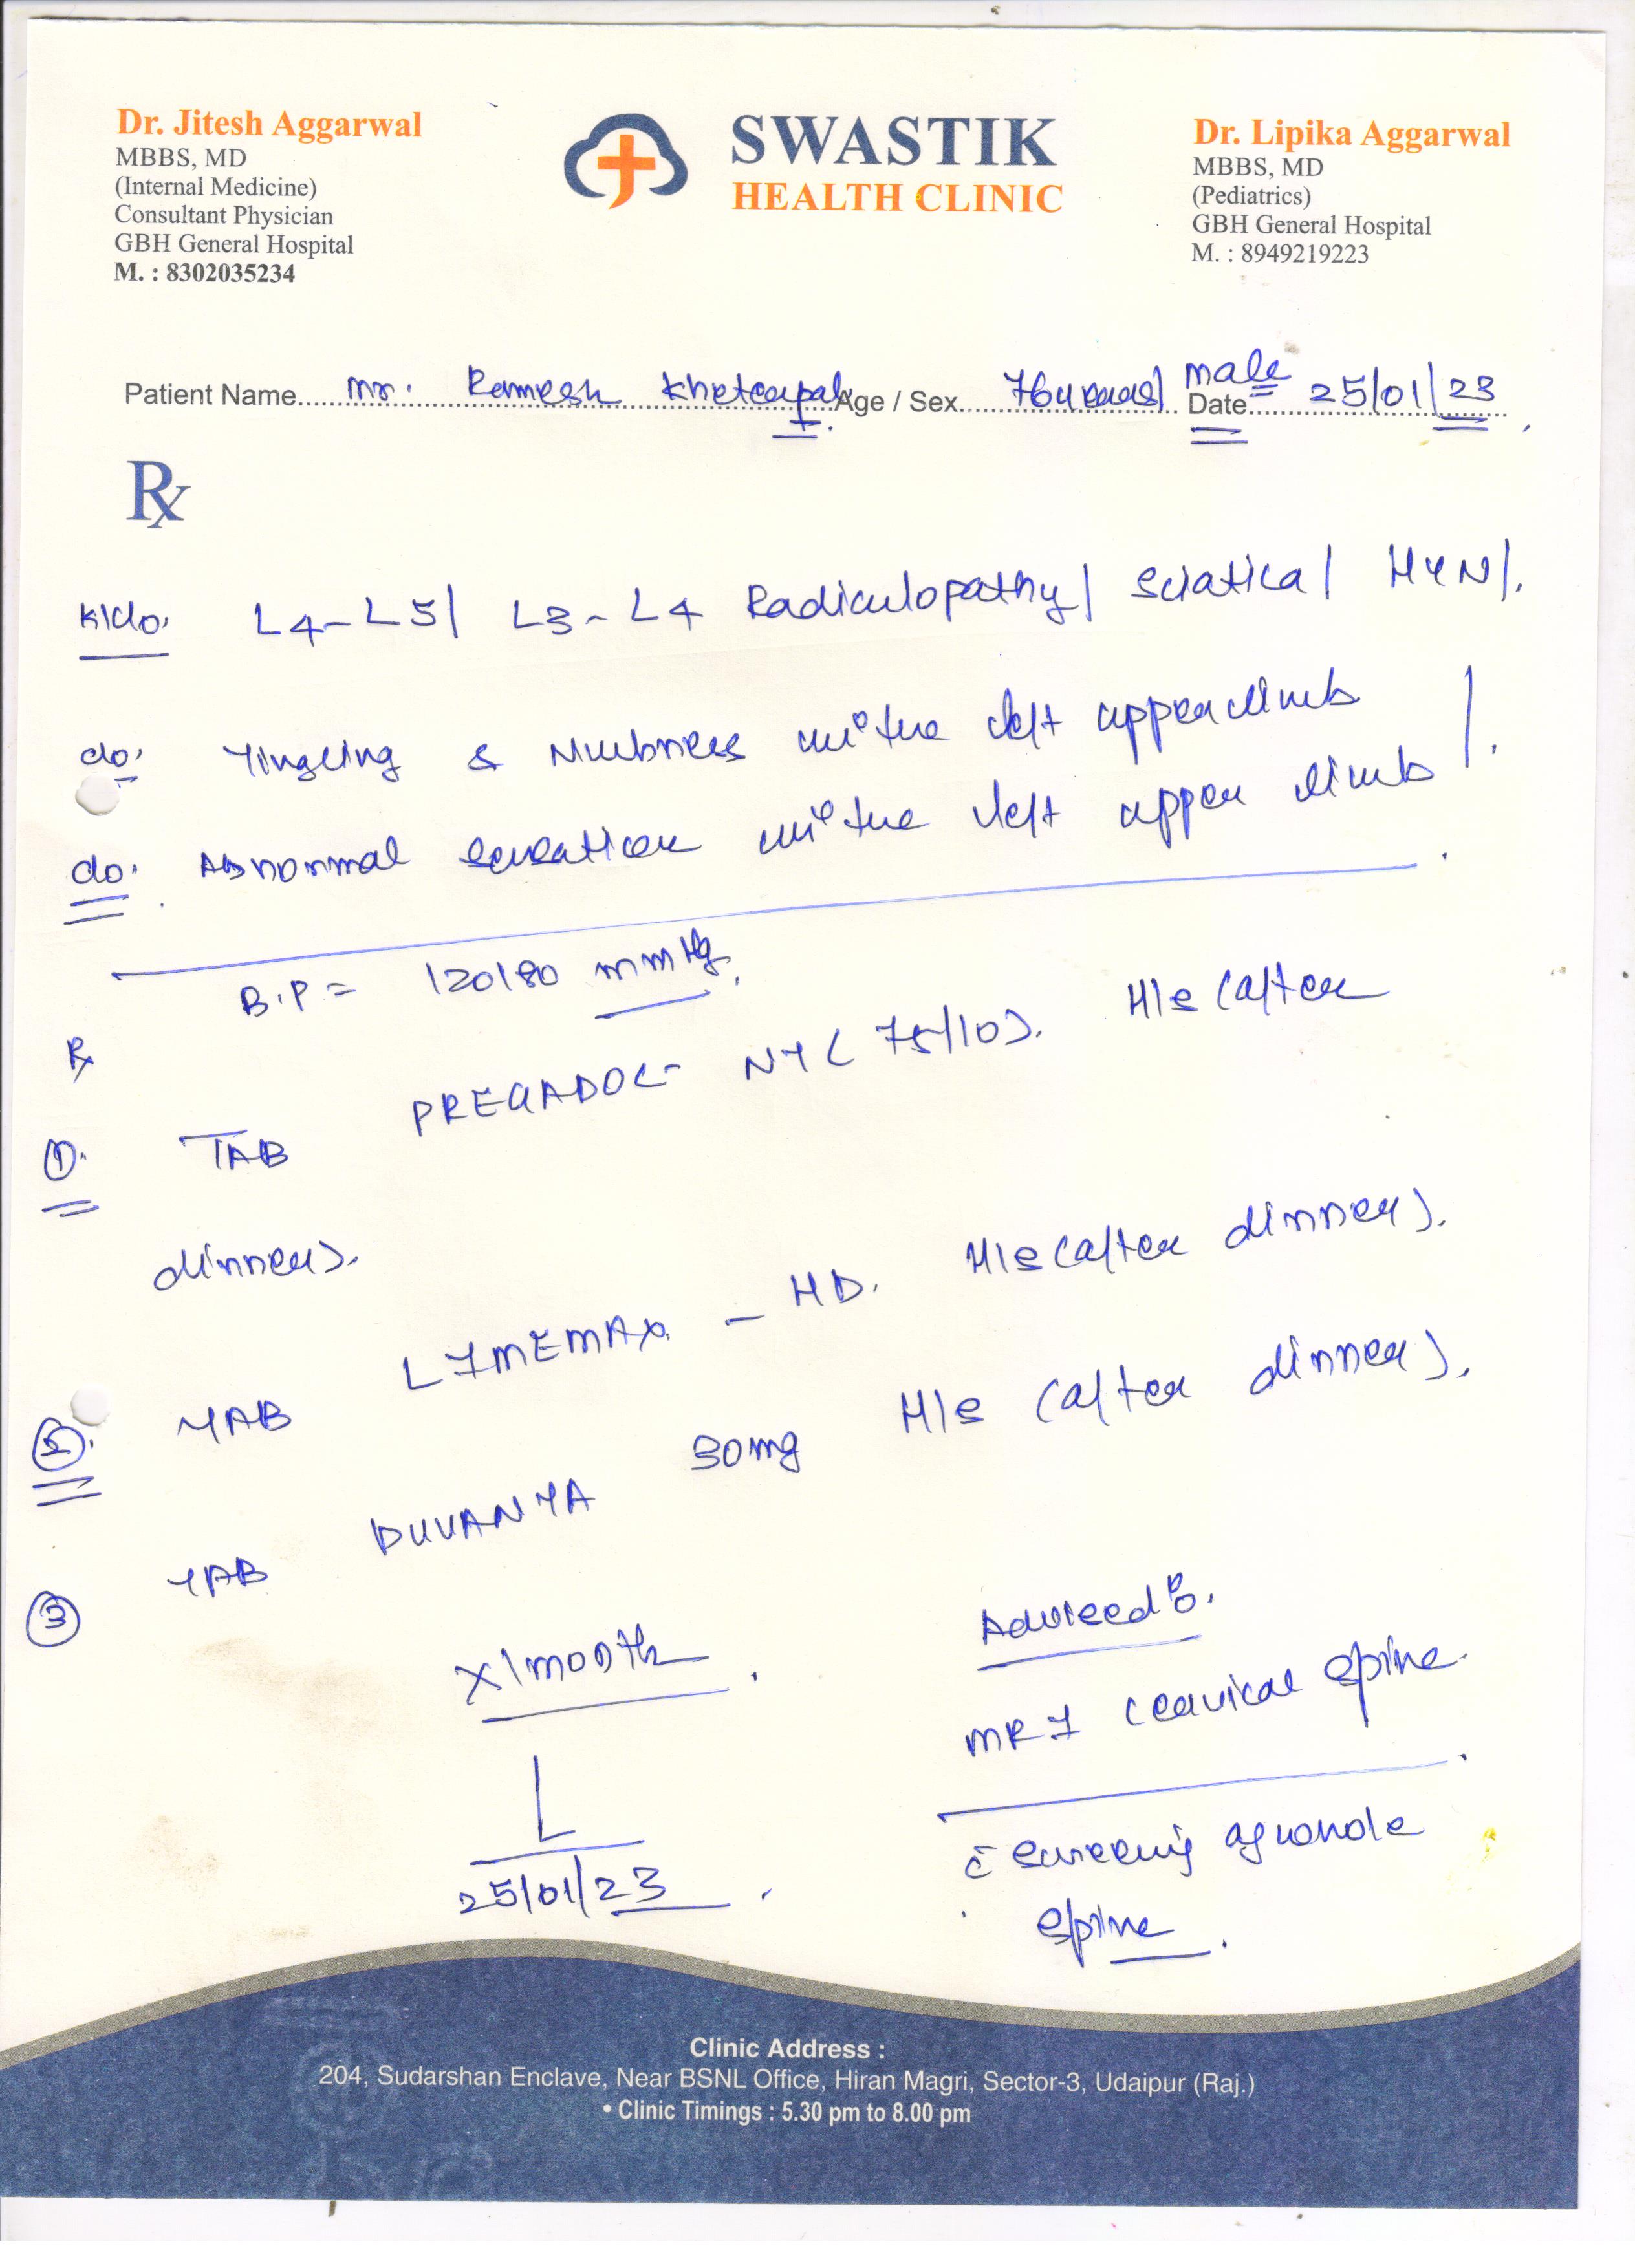 Dr. Jitesh Aggarwal
MBBS, MD
(Internal Medicine)
Consultant Physician
GBH General Hospital
M. : 8302035234
SWASTIK
HEALTH CLINIC
Dr. Lipika Aggarwal
MBBS, MD
(Pediatrics)
GBH General Hospital
M. : 8949219223
Patient Name..... Mr. Ramesh Khetrapal Age / Sex..... 76 years/ male Date..... 25/01/23
Rx
K/c/o. L4-L5/ L3-L4 Radiculopathy/ Sciatica/ HTN/.
c/o. Tingling & Numbness in the left upper limb
c/o. Abnormal sensation in the left upper limb
B.P = 120/80 mmHg.
Rx
①. TAB PREGADOL- NT (75/10). H/s (after
dinner).
②. TAB LIMEMAX - HD. H/s (after dinner).
③ TAB DUVANTA 30mg H/s (after dinner).
x 1 month
25/01/23
Advised
MRI cervical spine
c̄ screening of whole
spine
Clinic Address :
204, Sudarshan Enclave, Near BSNL Office, Hiran Magri, Sector-3, Udaipur (Raj.)
• Clinic Timings : 5.30 pm to 8.00 pm